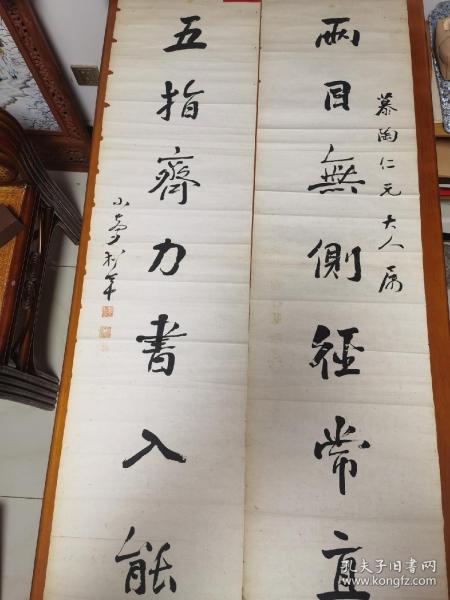 慕陶仁兄大人属
兩目無側徑常直
五指齊力書入能
孔夫子旧书网
www.kongfz.com